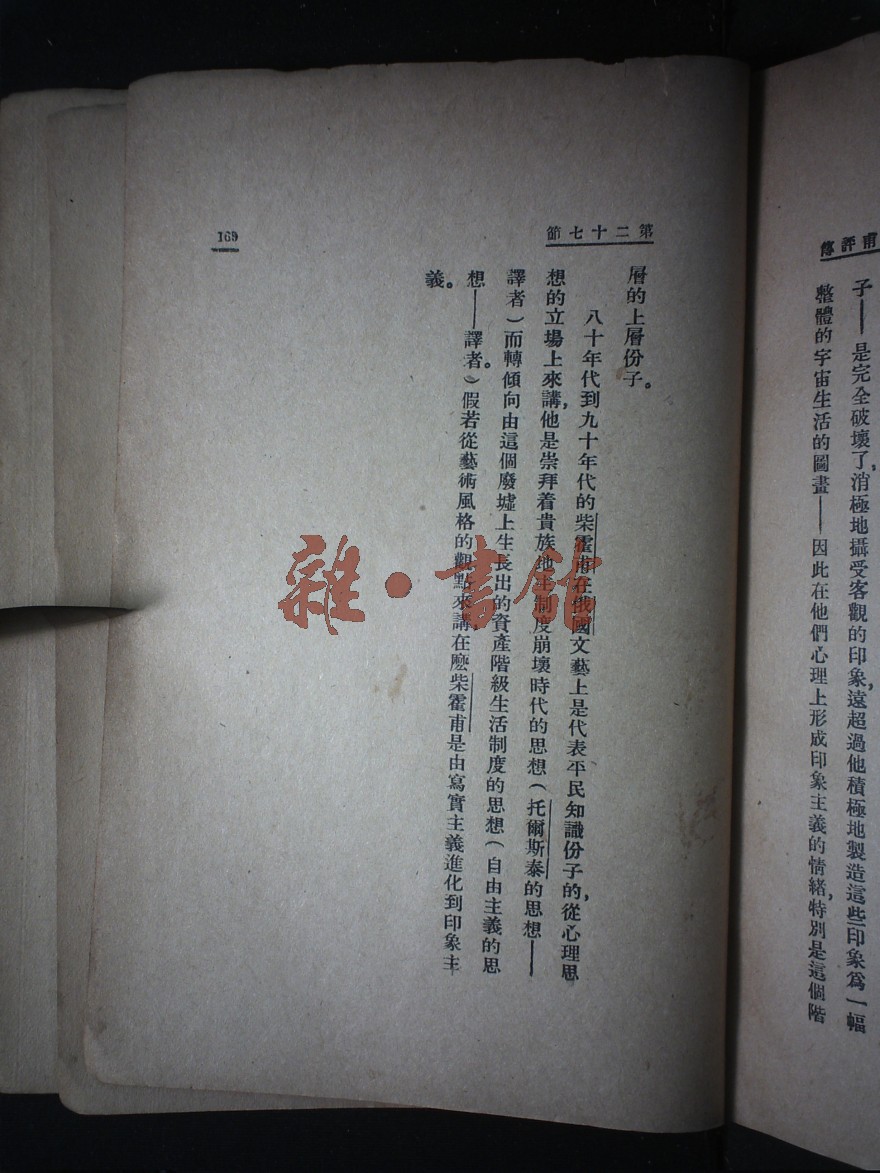 甫評傳
子——是完全破壞了,消極地攝受客觀的印象,遠超過他積極地製造這些印象爲一幅
整體的宇宙生活的圖畫——因此在他們心理上形成印象主義的情緒,特別是這個階
第二十七節
169
層的上層份子。
八十年代到九十年代的柴霍甫在俄國文藝上是代表平民知識份子的,從心理思
想的立場上來講,他是崇拜着貴族地主制度崩壞時代的思想(托爾斯泰的思想——
譯者)而轉傾向由這個廢墟上生長出的資產階級生活制度的思想(自由主義的思
想——譯者)。假若從藝術風格的觀點來講,在麽柴霍甫是由寫實主義進化到印象主
義。
雜·書館